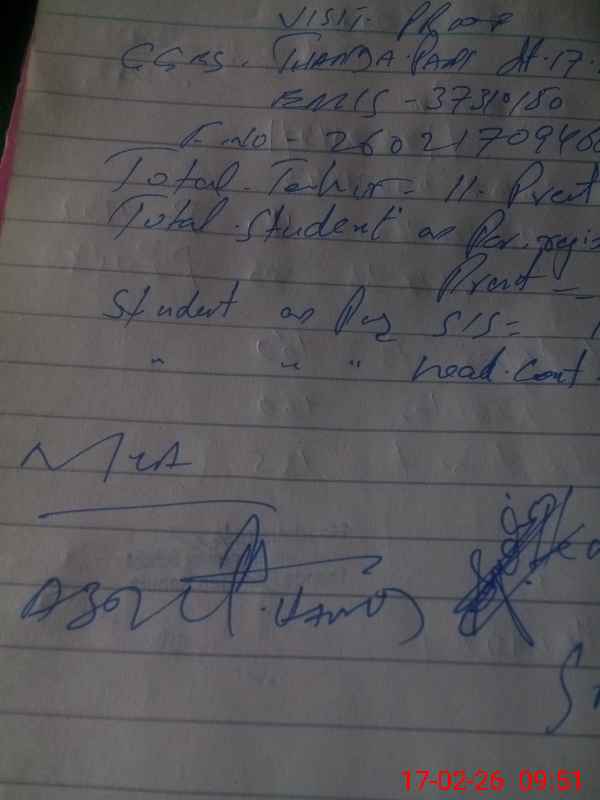 VISIT PROOF
GGBS. THANDA PANI dt. 17.
EMIS - 3731180
F.NO - 2602170946
Total. Teacher = 11. Prent
Total. Student as Per. regis
Prent =
Student as Per SIS =
" " " head. Cont
MEA
17-02-26 09:51